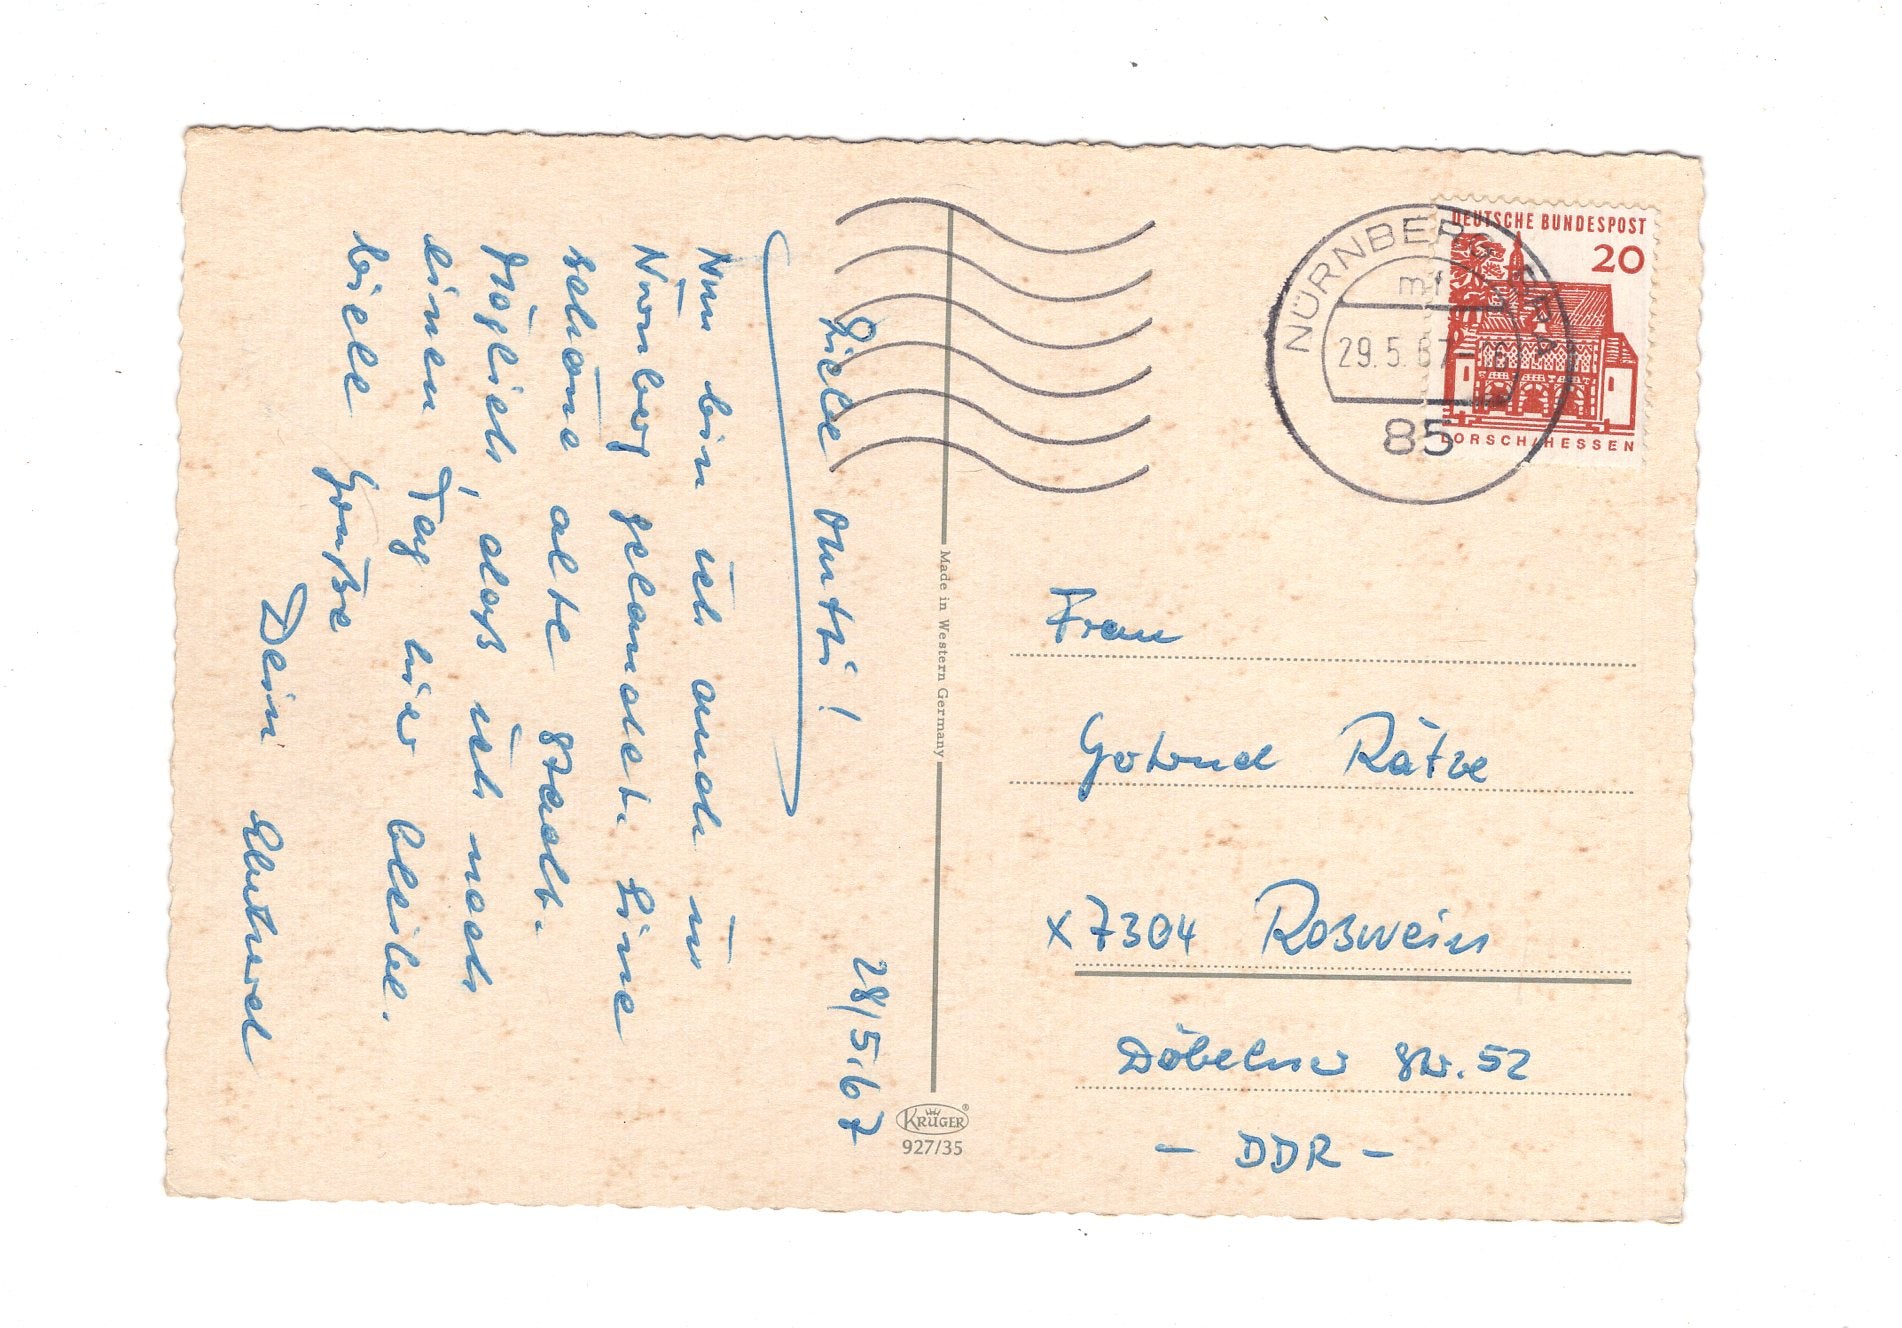 28/5.67
Liebe Mutti!
Nun bin ich auch in
Nürnberg gelandet. Eine
schöne alte Stadt.
Möglich, daß ich noch
einen Tag hier bleibe.
Viele Grüße
Dein
Made in Western Germany
KRÜGER
927/35
DEUTSCHE BUNDESPOST
20
LORSCH/HESSEN
NÜRNBERG
mf
29.5.67
85
Frau
Gertrud
x 7304 Roßwein
Döbelner Str. 52
- DDR -